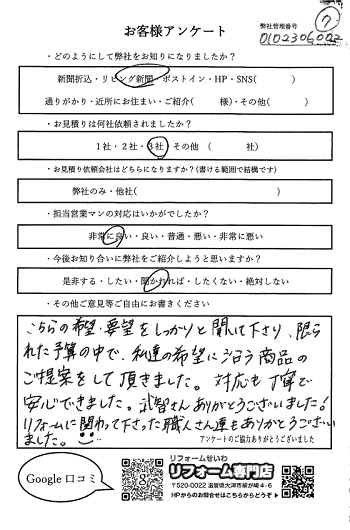 お客様アンケート
弊社管理番号
⑦
0102306022
・どのようにして弊社をお知りになりましたか？
新聞折込・リビング新聞・ポストイン・HP・SNS( )
通りがかり・近所にお住まい・ご紹介( 様)・その他( )
・お見積りは何社依頼されましたか？
1社・2社・3社・その他 ( 社)
・お見積り依頼会社はどちらになりますか？(書ける範囲で結構です)
弊社のみ・他社( )
・担当営業マンの対応はいかがでしたか？
非常に良い・良い・普通・悪い・非常に悪い
・今後お知り合いに弊社をご紹介しようと思いますか？
是非する・したい・聞かれれば・したくない・絶対しない
・その他ご意見等ご自由にお書きください
こちらの希望・要望をしっかりと聞いて下さり、限ら
れた予算の中で、私達の希望に沿う商品の
ご提案をして頂きました。対応も丁寧で
安心できました。武智さんありがとうございました！
リフォームに関わって下さった職人さん達もありがとうござい
ました。
アンケートのご協力ありがとうございました
Google口コミ
リフォームせいわ
リフォーム専門店
〒520-0022 滋賀県大津市柳が崎4-6
HPからのお問合せはこちらからどうぞ